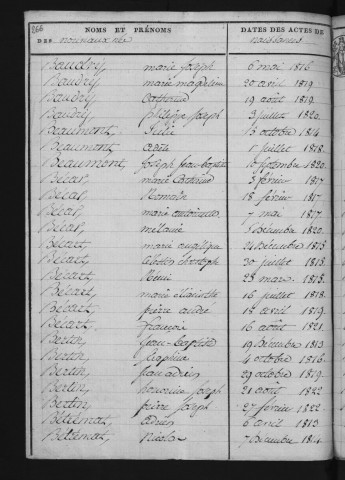 266
NOMS ET PRÉNOMS DATES DES ACTES DE
DES nouveaux nés naissances
Baudry, marie joseph 6 mai 1816
Baudry, marie magdeleine 20 avril 1819
Baudry, Catherine 19 août 1819
Baudry, philippe joseph 3 juillet 1820
Beaumont, Julie 15 octobre 1814
Beaumont, 1er juillet 1818
Beaumont, joseph jean baptiste 10 septembre 1820
Bécar, marie Catherine 3 février 1817
Bécar, Romain 18 février 1817
Bécar, marie antoinette 7 mai 1817
Bécar, mélanie Décembre 1820
Bécart, marie angélique 21 Décembre 1813
Bécart, christophe 30 juillet 1813
Bécart, Remi 28 mars 1815
Bécart, marie 16 juillet 1818
Bécart, pierre andré 18 avril 1819
Bécart, françois 16 août 1821
Bertin, jean baptiste 19 Décembre 1813
Bertin, Séraphine 4 octobre 1816
Bertin, jean adrien 29 octobre 1819
Bertin, honorine joseph 21 août 1822
Bertin, pierre joseph 27 février 1822
Bétremat, adrien 6 avril 1813
Bétremat, Nicolas 7 Décembre 1814